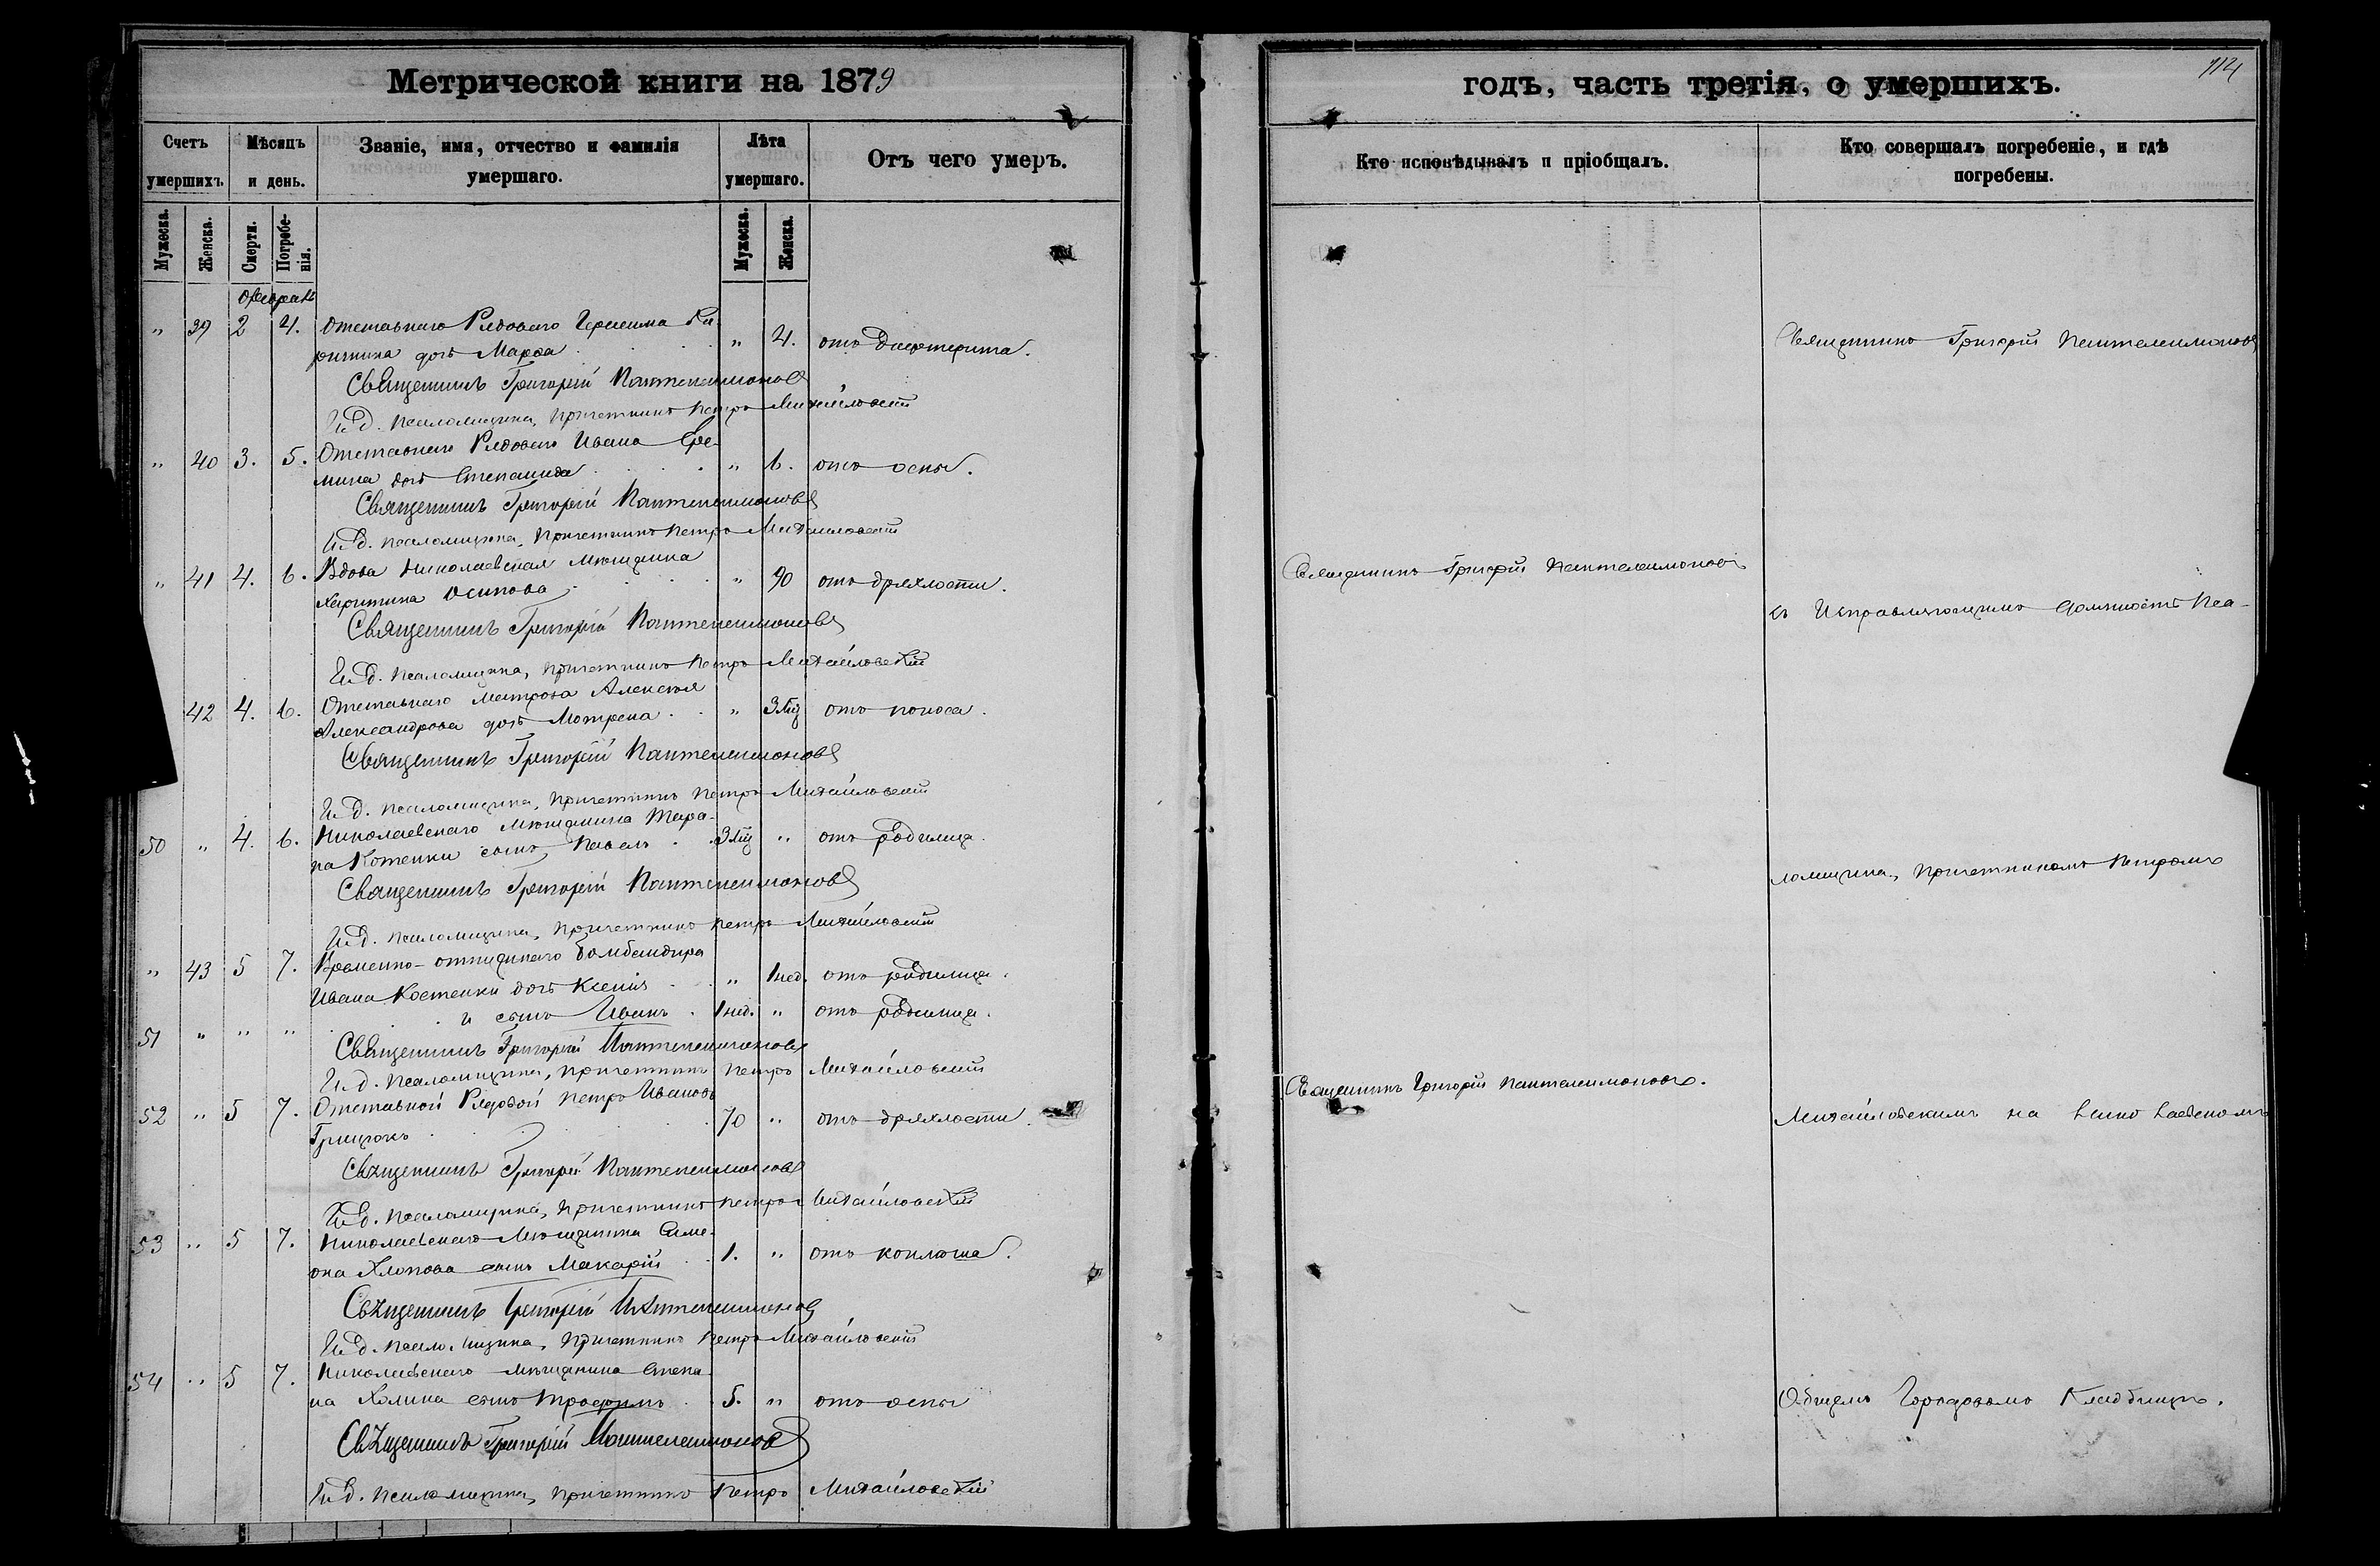 Метрической книги на 1879
годъ, часть третія, о умершихъ.
114
Счетъ умершихъ.
Мѣсяцъ и день.
Званіе, имя, отчество и фамилія умершаго.
Лѣта умершаго.
Отъ чего умеръ.
Кто исповѣдывалъ и пріобщалъ.
Кто совершалъ погребеніе, и гдѣ погребены.
Мужеска. Женска. Смерти. Погребенія. Мужеска. Женска.
" 39 2 4. Отставнаго Рядоваго Герасима
дочь Марфа " 4. отъ дифтерита.
Священникъ Григорій Пантелеимоновъ
И. д. псаломщика, причетникъ Петръ Михайловскій
" 40 3. 5. Отставнаго Рядоваго Ивана Ере-
мина дочь Степанида " 6. отъ оспы.
Священникъ Григорій Пантелеимоновъ
И. д. псаломщика, причетникъ Петръ Михайловскій
" 41 4. 6. Вдова Николаевская мѣщанка
Харитина Осипова " 90 отъ дряхлости.
Священникъ Григорій Пантелеимоновъ
И. д. псаломщика, причетникъ Петръ Михайловскій
42 4. 6. Отставнаго матроза Алексѣя
Александрова дочь Мотрона " 3 мц отъ поноса.
Священникъ Григорій Пантелеимоновъ
И. д. псаломщика, причетникъ Петръ Михайловскій
50 " 4. 6. Николаевскаго мѣщанина Тара-
са Котенки сынъ Павелъ 3 мц " отъ родимца.
Священникъ Григорій Пантелеимоновъ
И. д. псаломщика, причетникъ Петръ Михайловскій
" 43 5 7. Временно-отпускнаго бомбандира
Ивана Костенки дочь Ксенія " 1 нед. отъ родимца.
51 " " " и сынъ Иванъ 1 нед. " отъ родимца.
Священникъ Григорій Пантелеимоновъ
И. д. псаломщика, причетникъ Петръ Михайловскій
52 " 5 7. Отставной Рядовой Петръ Ивановъ
70 " отъ дряхлости.
Священникъ Григорій Пантелеимоновъ
И. д. псаломщика, причетникъ Петръ Михайловскій
53 " 5 7. Николаевскаго мѣщанина Симе-
она Хлопова сынъ Макарій 1. " отъ коклюша.
Священникъ Григорій Пантелеимоновъ
И. д. псаломщика, причетникъ Петръ Михайловскій
54 " 5 7. Николаевскаго мѣщанина Степа-
на Халина сынъ Трофимъ 5. " отъ оспы
Священникъ Григорій Пантелеимоновъ
И. д. псаломщика, причетникъ Петръ Михайловскій
Священникъ Григорій Пантелеимоновъ
Священникъ Григорій Пантелеимоновъ.
Священникъ Григорій Пантелеимоновъ
съ Исправляющимъ должность Пса-
ломщика, причетникомъ Петромъ
Михайловскимъ на
Общемъ Городовомъ Кладбищѣ.